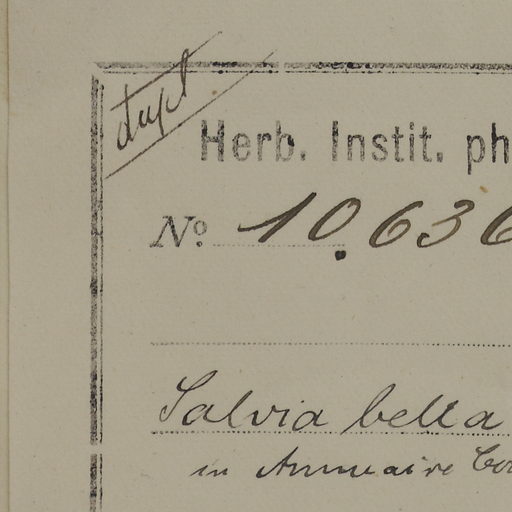 dupl
Herb. Instit. ph
No. 10.636
Salvia bella
in Annuaire Co